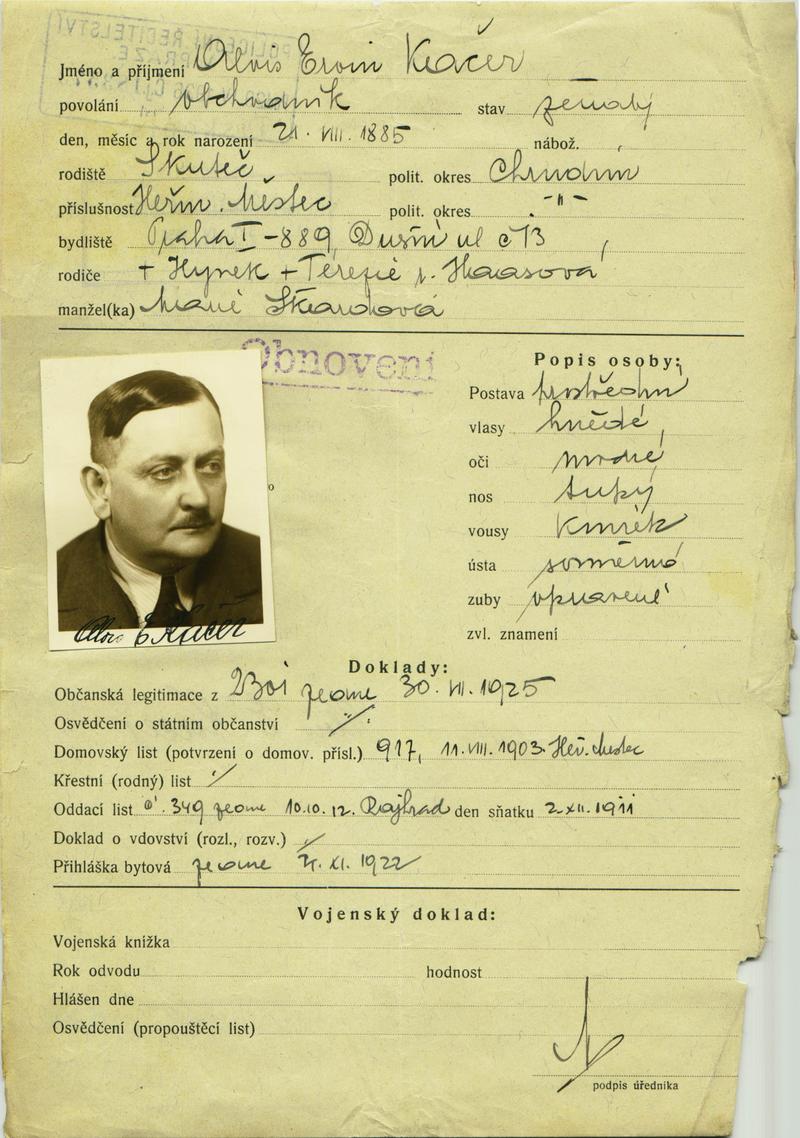 POLICEJNÍ ŘEDITELSTVÍ
Jméno a příjmení Alois Ervin Kačer
povolání obchodník stav ženatý
den, měsíc a rok narození 21. VIII. 1885 nábož.
rodiště Skuteč polit. okres Chrudim
příslušnost Heřm. Městec polit. okres -"-
bydliště Praha I - 889, Dušní ul č 13
rodiče + Hynek + Terezie r. Haasová
manžel(ka) Marie
Obnovení
Popis osoby:
Postava prostřední
vlasy hnědé
oči modré
nos tupý
vousy knírek
ústa souměrná
zuby opravené
zvl. znamení
Alois E Kačer
Doklady:
Občanská legitimace z 30. VII. 1925
Osvědčení o státním občanství
Domovský list (potvrzení o domov. přísl.) 917, 11. VIII. 1903. Heř. Městec
Křestní (rodný) list
Oddací list č. 349 10.10. 12. Rajhrad den sňatku 2. XII. 1911
Doklad o vdovství (rozl., rozv.)
Přihláška bytová XI. 1922
Vojenský doklad:
Vojenská knížka
Rok odvodu hodnost
Hlášen dne
Osvědčení (propouštěcí list)
podpis úředníka